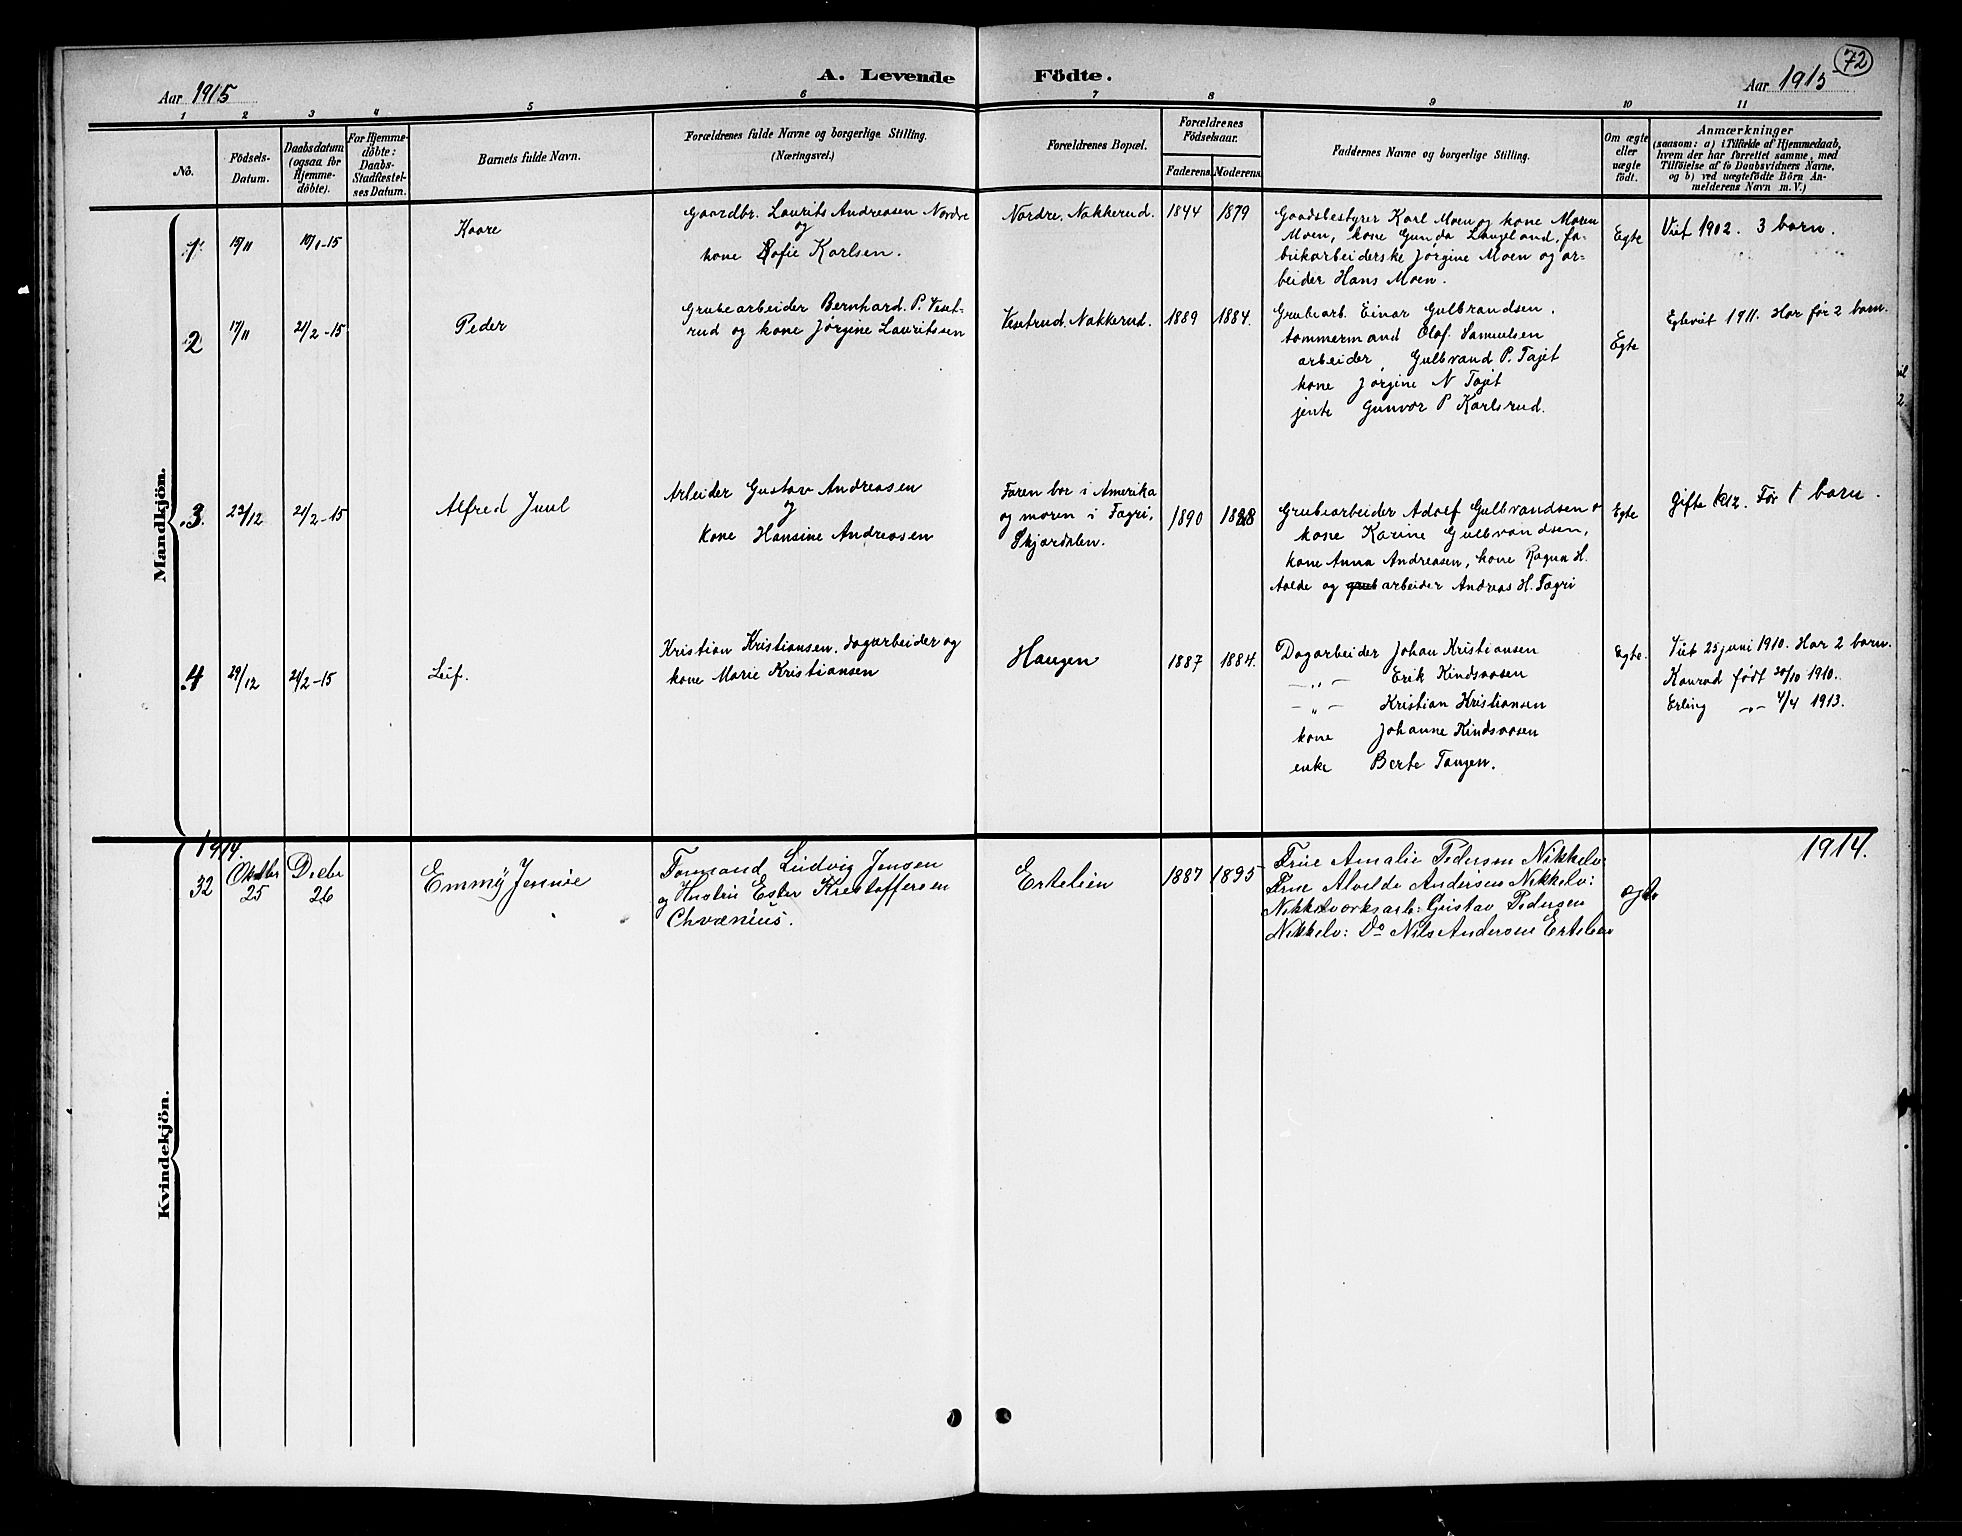 A. Levende Födte.
72
Aar 1915
Aar 1915
1 2 3 4 5 6 7 8 9 10 11
No.
Födsels-
Datum.
Daabsdatum
(ogsaa for
Hjemme-
döbte).
For Hjemme-
döbte:
Daabs-
Stadfæstel-
ses Datum.
Barnets fulde Navn.
Forældrenes fulde Navne og borgerlige Stilling.
(Næringsvei.)
Forældrenes Bopæl.
Forældrenes
Födselsaar.
Faderens. Moderens.
Faddernes Navne og borgerlige Stilling.
Om ægte
eller
uægte
födt.
Anmærkninger
(saasom: a) i Tilfælde af Hjemmedaab,
hvem der har forrettet samme, med
Tilföielse af to Daabsvidners Navne,
og b) ved uægtefödte Börn An-
melderens Navn m. V.)
Mandkjön.
1.
15/11
10/1-15
Kaare
Gaardbr. Laurits Andreasen Nordre
og
kone Sofie Karlsen.
Nordre, Nakkerud.
1844
1879
Gaadsbestyrer Karl Moen og kone Maren
Moen, kone Gunda Langeland, fa-
brikarbeiderske Jørgine Moen og ar-
beider Hans Moen.
Egte
Viet 1902. 3 barn.
2
17/11
21/2-15
Peder
Grubearbeider Bernhard. P. Veset-
rud og kone Jørgine Lauritssen
Vesetrud, Nakkerud.
1889
1884.
Grubearb. Einar Gulbrandsen.
tømmermand Olof Samuelsen
arbeider, Gulbrand P. Tajet
kone Jørgine N Tajet
jente Gunvor P Karlsrud.
Egte
Egteviet 1911. Har før 2 barn.
3.
23/12
21/2-15
Alfred Juul
Arbeider Gustav Andreasen
og
kone Hansine Andreasen
Faren bor i Amerika
og moren i Fagri,
Skjærdalen.
1890
1888
Grubearbeider Adolf Gulbrandsen o
kone Karine Gulbrandsen,
kone Anna Andreasen, kone Ragna H.
Aalde og grubarbeider Andreas H. Fagri
Egte
Gifte 1912. Før 1 barn.
4
29/12
21/2-15
Leif.
Kristian Kristiansen, dagarbeider og
kone Marie Kristiansen
Haugen
1887
1884.
Dagarbeider Johan Kristiansen
—„— Erik Kindsvosen
—„— Kristian Kristiansen
kone Johanne Kindsvosen
enke Berte Tangen.
Egte.
Viet 25 juni 1910. Har 2 barn.
Konrad født 30/10 1910.
Erling —„— 4/4 1913.
Kvindekjön.
1914.
1914.
32
Oktober
25
Decbr
26
Emmy Jennie
Formand Ludvig Jensen
og Hustru Ester Kristoffersen
Ertelien
1887
1895
Frue Amalie Pedersen Nikkelv:
Frue Alvilde Andersen Nikkelv:
Nikkelværksarb: Gustav Pedersen
Nikkelv: Do Nils Andersen Ertelien